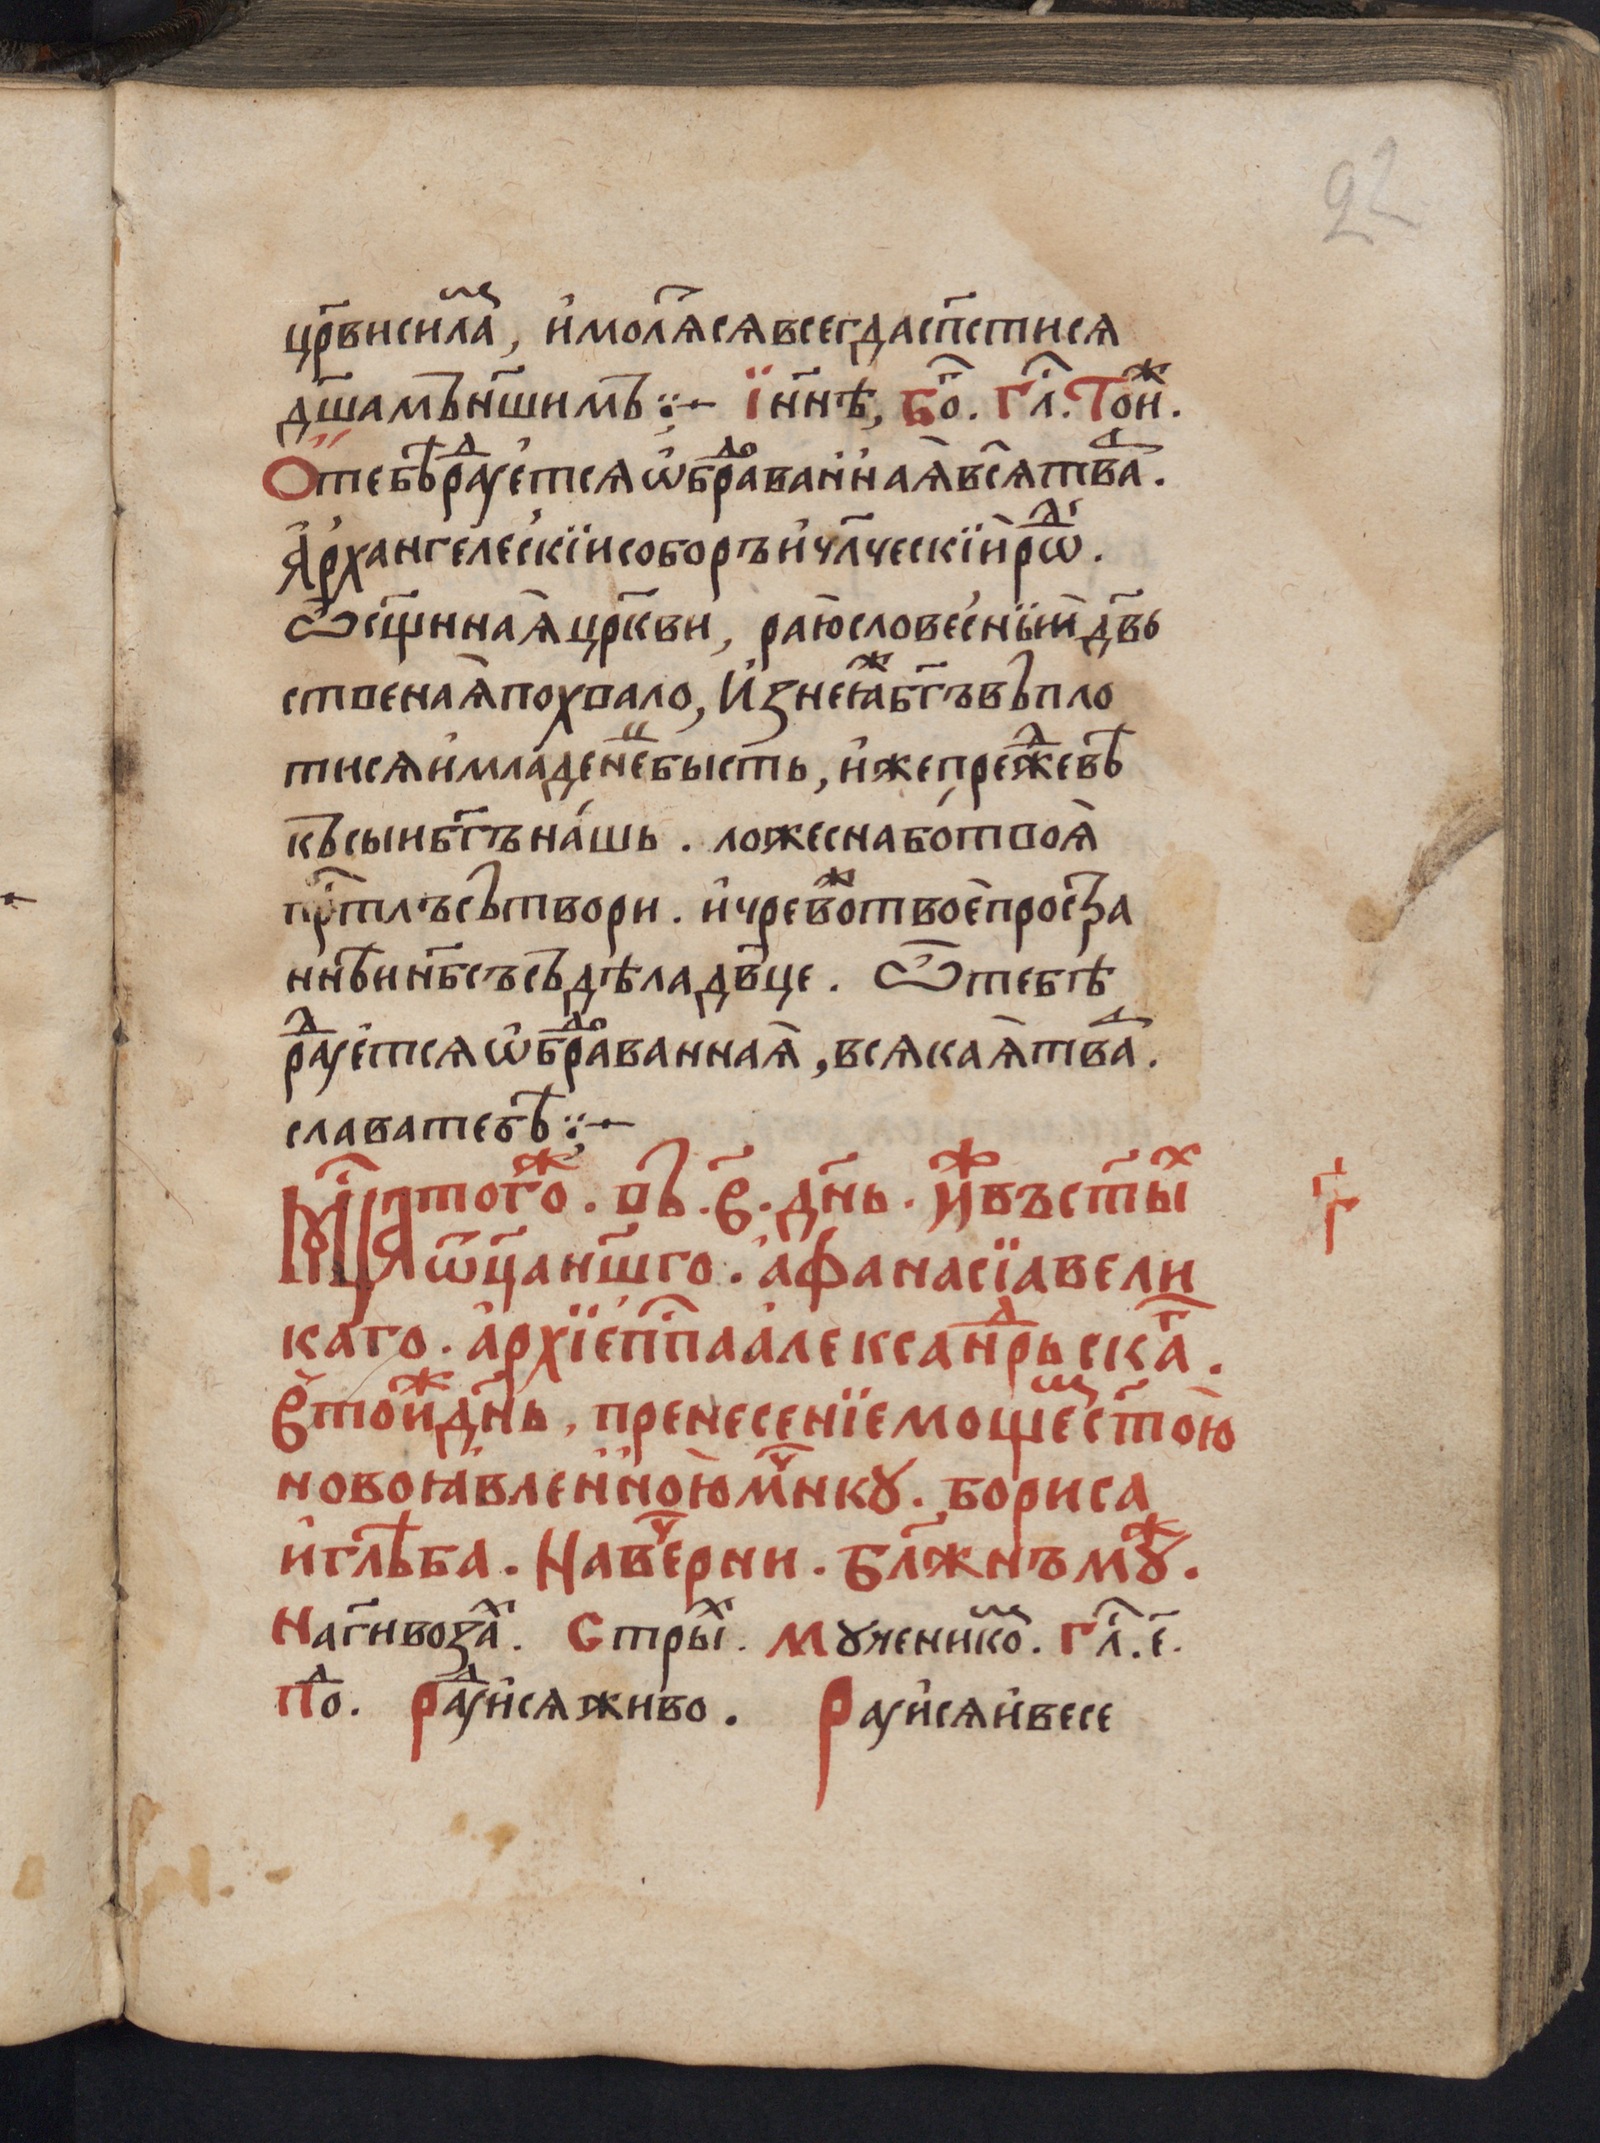 22
цр҃ви силаⷨ, и҆ мол҃ѧсѧ всегда сп҃стисѧ
дш҃амъ нш҃имъ ⁘ І҆ нн҃ѣ, Бо҃. Гл҃. Тоⷤн.
О тебѣ раⷣуе҆тсѧ ѡ҆браⷣованнаѧ всѧ тваⷬ҇.
А҆рхангелескїи соборъ и҆ чл҃ческїи роⷣ.
Ѡ҆сщ҃еннаѧ црк҃ви, раю словесныи дв҃ь
ственаѧ похвало, И҆з неѧⷤ бг҃ъ въпло
тисѧ и҆ младенеⷰ бысть, и҆же преⷤде вѣ
къ сыи бг҃ъ нашь. ложесна бо твоѧ
пр҃тлъ сътвори. и҆ чревоⷤ твое простра
ннѣи нб҃съ съдѣла дв҃це. Ѡ҆ тебѣ
раⷣуетсѧ ѡ҆браⷣованнаѧ, всѧкаѧ тваⷬ҇.
слава тебѣ ⁘
Мц҃а тогоⷤ. въ. в҃. дн҃ь. и҆ⷤ въ ст҃ыⷯ
ѿца нш҃го. а҆фанасїа вели
каго. а҆рхїеп҃па а҆лексанⷣрьскаⷢ.
в҃ тоиⷤ дн҃ь, пренесенїе мощеⷨ ст҃ою
новоꙗвленною мⷱ҇нкꙋ. бориса
и҆ глѣба. На веⷱ҇рни. бл҃жнъ мꙋⷤ.
На г҃и возваⷯ. Стры҃ⷯ. Мꙋченикоⷨ. Гл҃. є҃.
Поⷣ. Раⷣуисѧ живо. Раⷣуисѧ и҆ весе